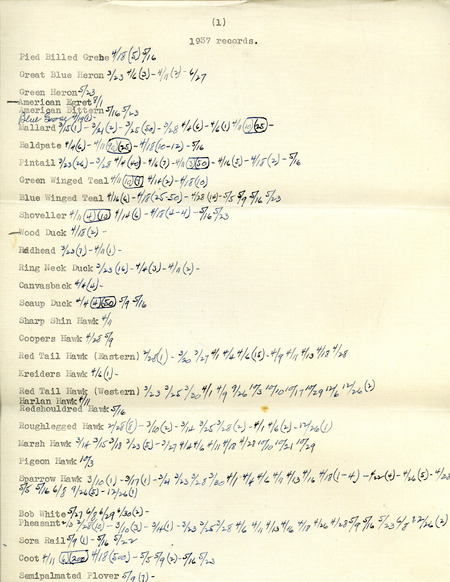 (1)
1937 records.
Pied Billed Grebe 4/18 (5) 5/16
Great Blue Heron 3/23 4/6 (3) - 4/11 (2) - 6/27
Green Heron 5/23
American Egret 5/1
American Bittern 5/16 5/23
Blue Goose 4/9 (1) -
Mallard 3/5 (1) - 3/21 (2) - 3/25 (50) - 3/28 4/4 (6) - 4/6 (1) 4/11 (10) (25) -
Baldpate 4/4 (6) - 4/11 (25) - 4/18 (10-12) - 5/16
Pintail 3/23 (26) - 3/28 4/4 (40) - 4/6 (7) - 4/11 (50) - 4/16 (5) - 4/18 (2) - 5/16
Green Winged Teal 4/11 (10) 4/14 (2) - 4/18 (10)
Blue Winged Teal 4/16 (6) - 4/18 (25-50) - 4/28 (14) - 5/5 5/9 5/16 5/23
Shoveller 4/11 (4) (10) 4/14 (6) - 4/18 (4-4) - 5/16 5/23
Wood Duck 4/18 (2) -
Redhead 3/23 (7) - 4/11 (1) -
Ring Neck Duck 3/23 (16) - 4/4 (3) - 4/11 (2) -
Canvasback 4/4 (4) -
Scaup Duck 4/4 (4) (50) 5/9 5/16
Sharp Shin Hawk 4/11
Coopers Hawk 4/28 5/9
Red Tail Hawk (Eastern) 2/28 (1) - 3/20 3/27 4/1 4/4 4/6 (15) - 4/9 4/11 4/13 4/18 4/28
Kreiders Hawk 4/6 (1) -
Red Tail Hawk (Western) 3/23 3/25 3/20 4/1 4/9 9/26 10/3 10/10 10/17 10/29 12/6 12/26 (2)
Harlan Hawk 4/11
Redshouldred Hawk 5/16
Roughlegged Hawk 2/28 (8) - 3/10 (2) - 3/14 3/25 3/28 (2) - 4/1 4/6 (2) - 12/26 (1)
Marsh Hawk 3/14 3/15 3/18 3/23 (5) - 3/27 4/4 4/6 4/11 4/18 4/28 10/10 10/21 10/29
Pigeon Hawk 10/3
Sparrow Hawk 3/10 (1) - 3/17 (1) - 3/21 3/23 3/28 3/20 4/1 4/4 4/6 4/11 4/13 4/16 4/18 (1-4) - 4/22 (4) - 4/26 (5) - 4/28
5/5 5/16 6/8 9/26 (5) - 12/26 (1)
Bob White 5/27 6/8 6/29 6/30 (2) -
Pheasant 2/28 (10) - 3/10 (3) - 3/14 (1) - 3/23 3/25 3/28 4/6 4/11 4/13 4/16 4/18 4/26 4/28 5/9 5/16 5/23 6/8 12/26 (2)
Sora Rail 5/9 (1) - 5/16 5/22
Coot 4/11 (6) (200) 4/18 (500) - 5/5 5/9 (2) - 5/16 5/23
Semipalmated Plover 5/9 (7) -